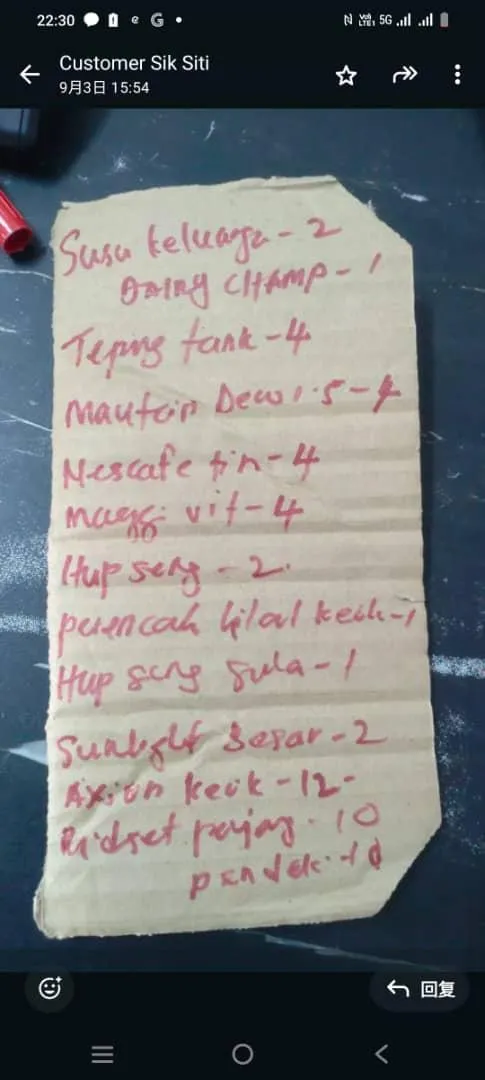 22:30
Customer Sik Siti
9月3日 15:54
Susu keluarga - 2
DAIRY CHAMP - 1
Teping tank - 4
Dew 1.5 - 4
Nescafe tin - 4
Maggi vit - 4
Hup seng - 2.
perencah kecik - 1
Hup seng Gula - 1
Sunlight Besar - 2
Axion kecik - 12 -
Ridset panjang. 10
pendek - 10
回复